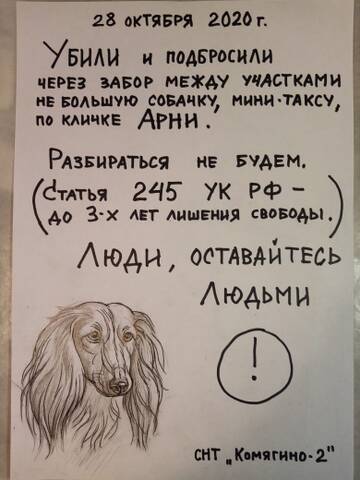 28 ОКТЯБРЯ 2020 г.
УБИЛИ и ПОДБРОСИЛИ
ЧЕРЕЗ ЗАБОР МЕЖДУ УЧАСТКАМИ
НЕ БОЛЬШУЮ СОБАЧКУ, МИНИ-ТАКСУ,
ПО КЛИЧКЕ АРНИ.
РАЗБИРАТЬСЯ НЕ БУДЕМ.
(СТАТЬЯ 245 УК РФ -
ДО 3-Х ЛЕТ ЛИШЕНИЯ СВОБОДЫ.)
ЛЮДИ, ОСТАВАЙТЕСЬ
ЛЮДЬМИ
!
СНТ „Комягино-2"